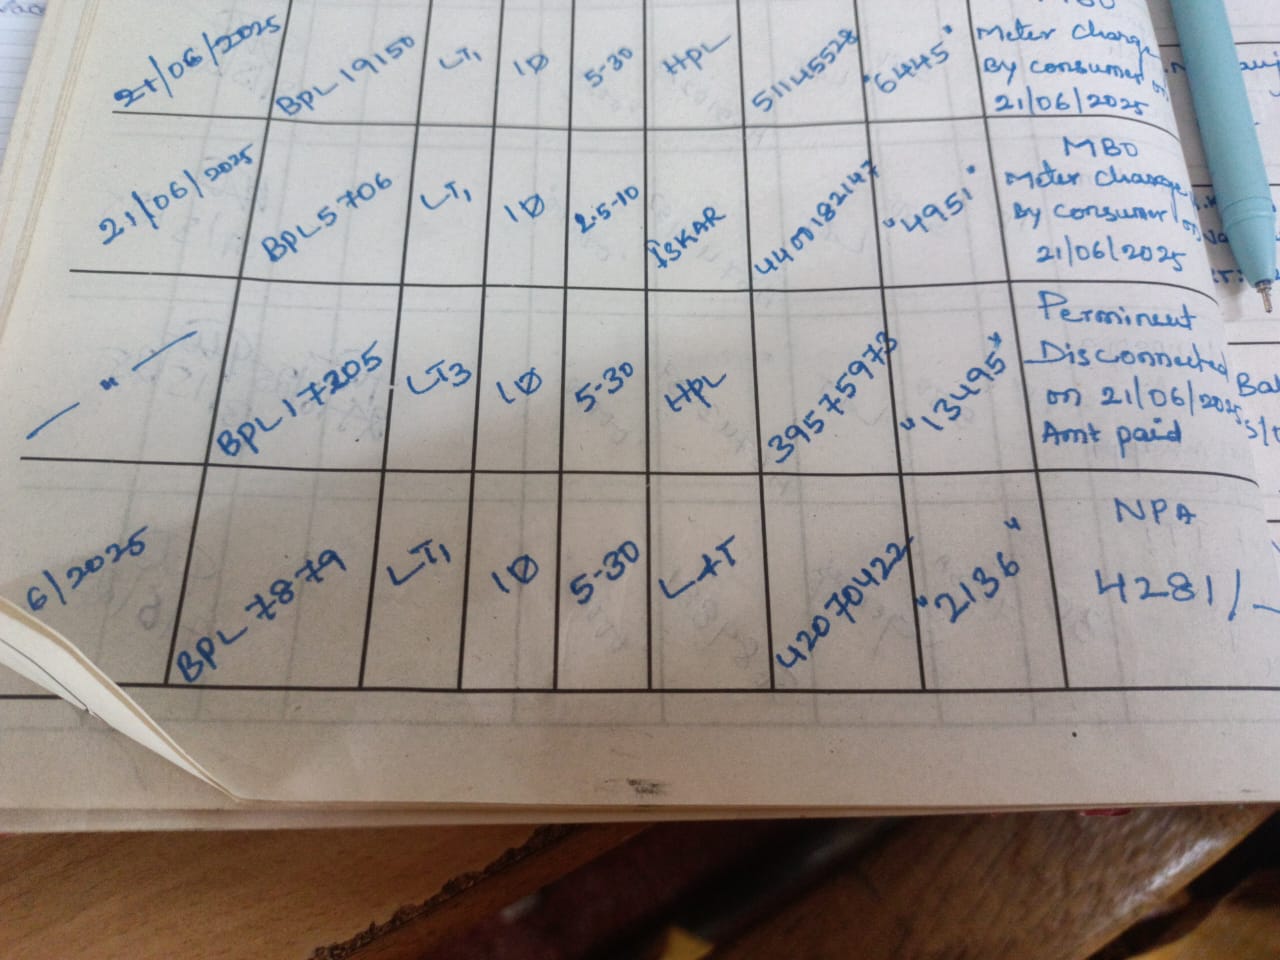 21/06/2025 BPL19150 LT1 1Ø 5-30 HPL 51145528 "6445" Meter Change
By consumer on
21/06/2025
21/06/2025 BPL5706 LT1 1Ø 2.5-10 ISKAR 4400182147 "4951" MBO
Meter Change
By consumer on
21/06/2025
— " — BPL17205 LT3 1Ø 5-30 HPL 39575973 "13495" Perminent
Disconnected
on 21/06/2025
Amt paid
6/2025 BPL7879 LT1 1Ø 5-30 L+T 42070422 "2136" NPA
4281/-